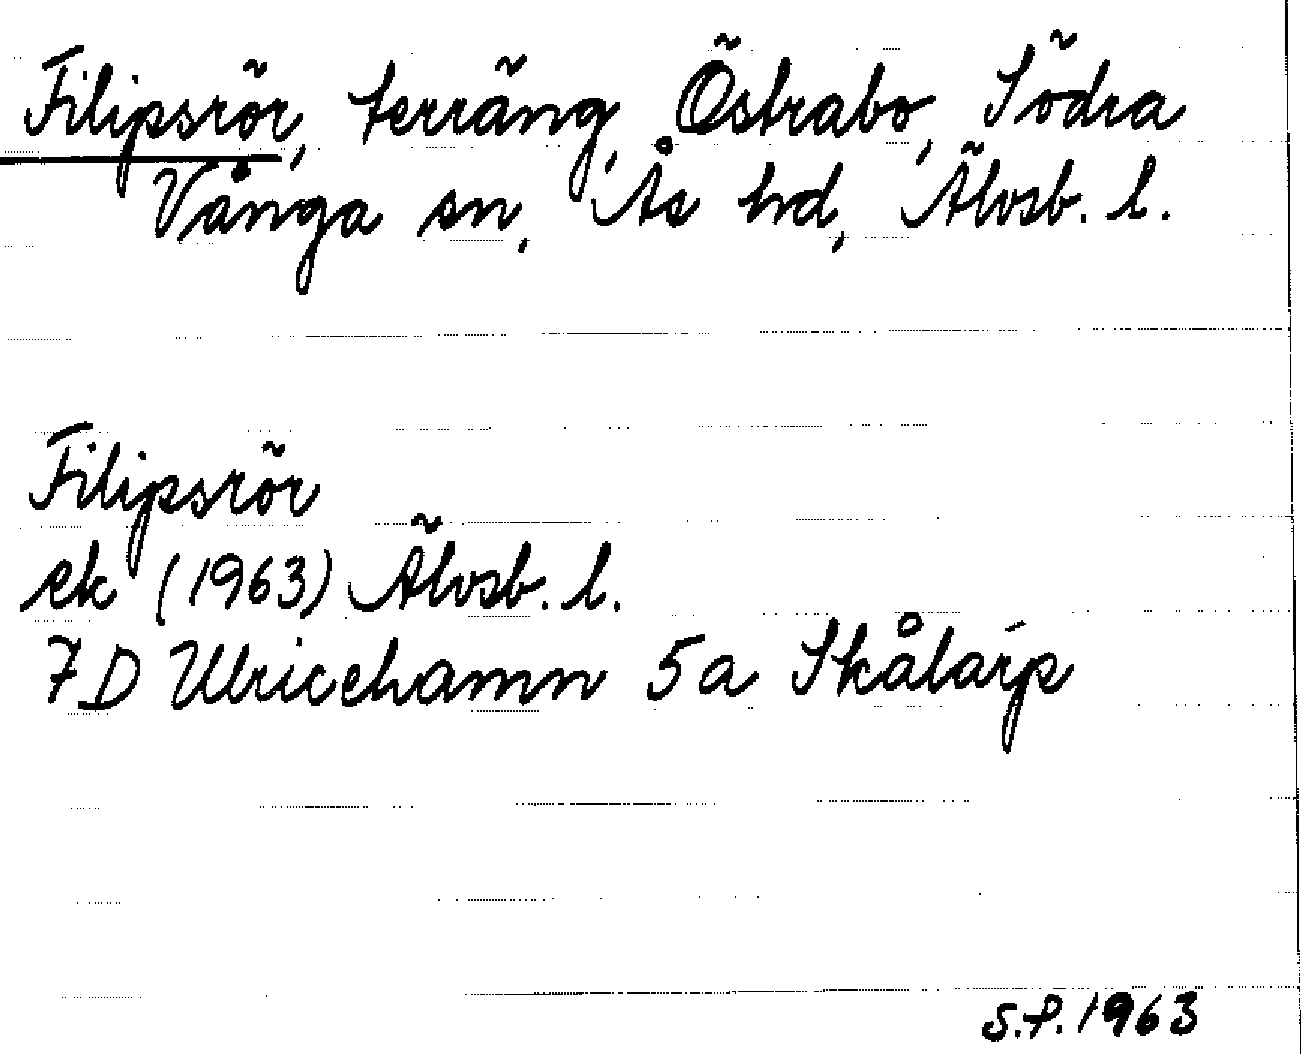 Filipsrör, terräng, Östrabo, Södra
Vånga sn, Ås hd, Älvsb. l.
Filipsrör
ek (1963) Älvsb. l.
7D Ulricehamn 5a Skålarp
S.P. 1963